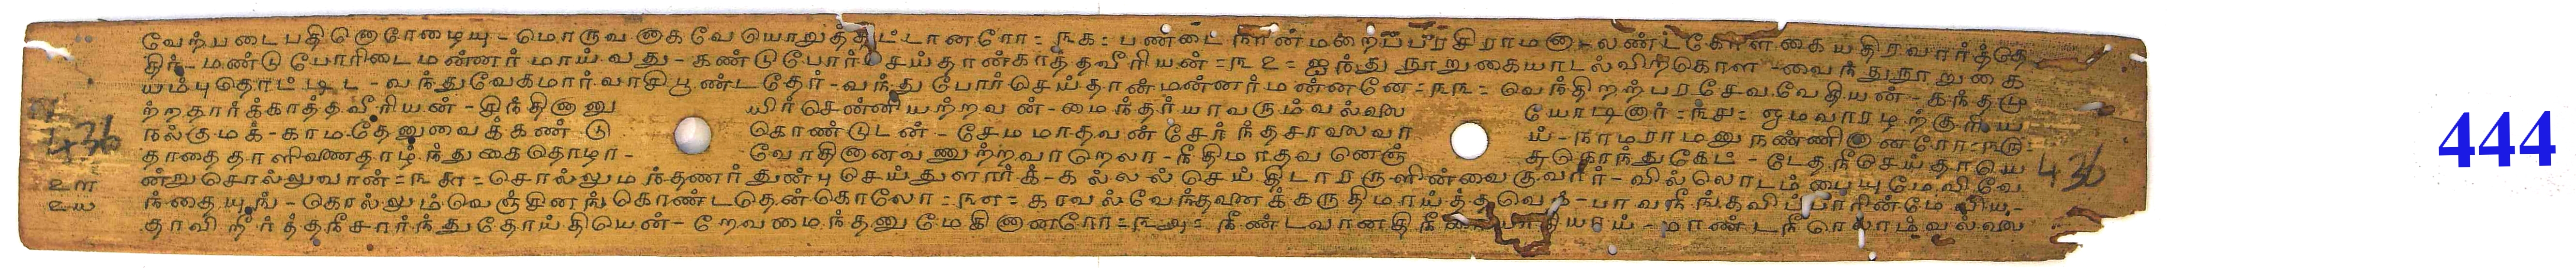 வேற்படை பதினொரோழையு - மொருவனாக வேயொறுத்திட்டானரோ = ௩௧ = பண்டை நான்மறைப்பரசிராமனா - லண்ட கோளகையதிரவார்த்தே
திர் - மண்டு போரிடை மன்னர் மாய்வது - கண்டு போர் செய்தான்காத்தவீரியன் = ௩௨ = ஐந்து நூறுகையாடல்விற்கொள - வைந்து நூறுகை
யம்பு தொட்டிட - வந்துவேகமார் வாசி பூண்டதேர் - வந்து போர் செய்தான் மன்னர் மன்னனே = ௩௩ = வெந்திறற்பரசேவ வேதியன் - கந்தமு
ற்றதார்க்காத்தவீரியன் - சிந்தினானு யிர்சென்னியற்றவன் - மைந்தர்யாவரும் வல்லை யோடினார் = ௩௪ = ஓமவாரழற்குரிய
நல்குமக் - காமதேனுவைக்கண்டு கொண்டுடன் - சேமமாதவன் சேர்ந்தசாலைவா ய் - நாமராமனு நண்ணினானரோ = ௩௫
தாதை தாளிணை தாழ்ந்து கைதொழா - வோதினானவணுற்றவாறெலா - நீதிமாதவனெஞ் சுநொந்துகேட் - டேதுநீசெய்தாயெ
ன்று சொல்லுவான் = ௩௬ = சொல்லுமந்தணர் துன்பு செய்துளார்க் - கல்லல் செய்திடாரருளின்வைகுவார் - வில்லொடம்பையுமேவிவே
ந்தையுங் - கொல்லும்வெஞ்சினங்கொண்டதென்கொலோ = ௩௭ = காவல்வேந்தனைக்கருதிமாய்த்தவெ - பாவநீங்கவிப்பாரின்மேவிய -
தாவிநீர்த்தநீசார்ந்துதோய்தியென் - றேவமைந்தனுமேகினானரோ = ௩௮ = நீண்டவானதி - மாண்டநீரெலாம்வல்லை
436
436
444